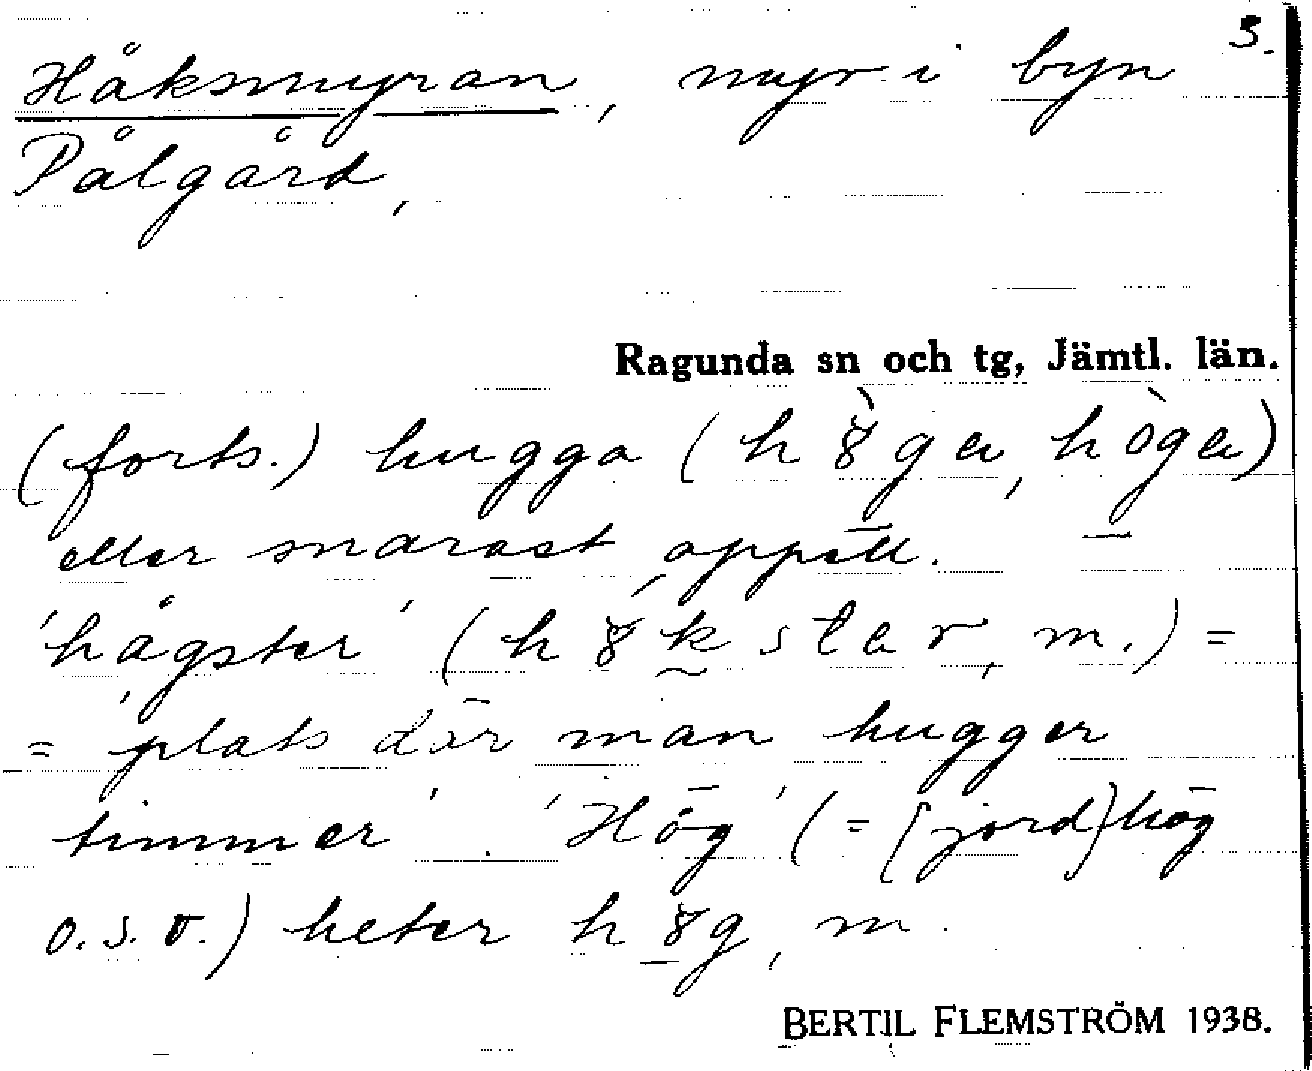 3.
Håksmyran, myr i byn
Pålgård,
Ragunda sn och tg, Jämtl. län.
(forts.) hugga (h 8̀ g a, h ò g a)
eller snarast appell.
'hågster' (h 8 k s t a r, m.) =
= 'plats där man hugger
timmer'. 'Hög' (= [jord]hög
o.s.v.) heter h 8 g, m.
BERTIL FLEMSTRÖM 1938.